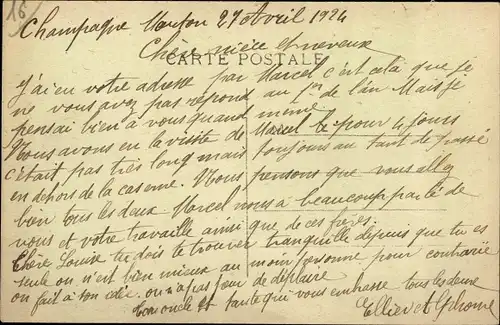 16
Champagne 27 Avril 1924
Chère nièce et neveux
CARTE POSTALE
J'ai eu votre adresse par Marcel c'est cela que je
ne vous avez pas répond au 1er de l'an Mais je
pensai bien à vous quand même
Nous avons eu la visite de Marcel pour 4 jours
c'était pas très long mais toujours au tant de passé
en dehors de la caserne. Nous pensons que vous allez
bien tous les deux Marcel nous a beaucoup parlé de
vous et votre travaille ainsi que de ces frères
Chère Louise tu dois te trouver tranquille depuis que tu es
seule on n'est bien mieux au moin personne pour contrarié
on fait à son idée on n'a pas peur de déplaire
Ton oncle et tante qui vous embrasse tous les deux